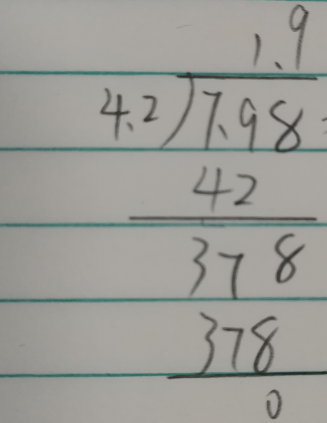 1.9
4.2)7.98
42
378
378
0